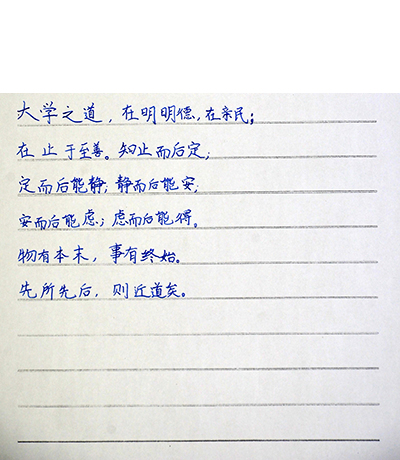 大学之道，在明明德，在亲民；
在止于至善。知止而后定；
定而后能静；静而后能安；
安而后能虑；虑而后能得。
物有本末，事有终始。
先所先后，则近道矣。